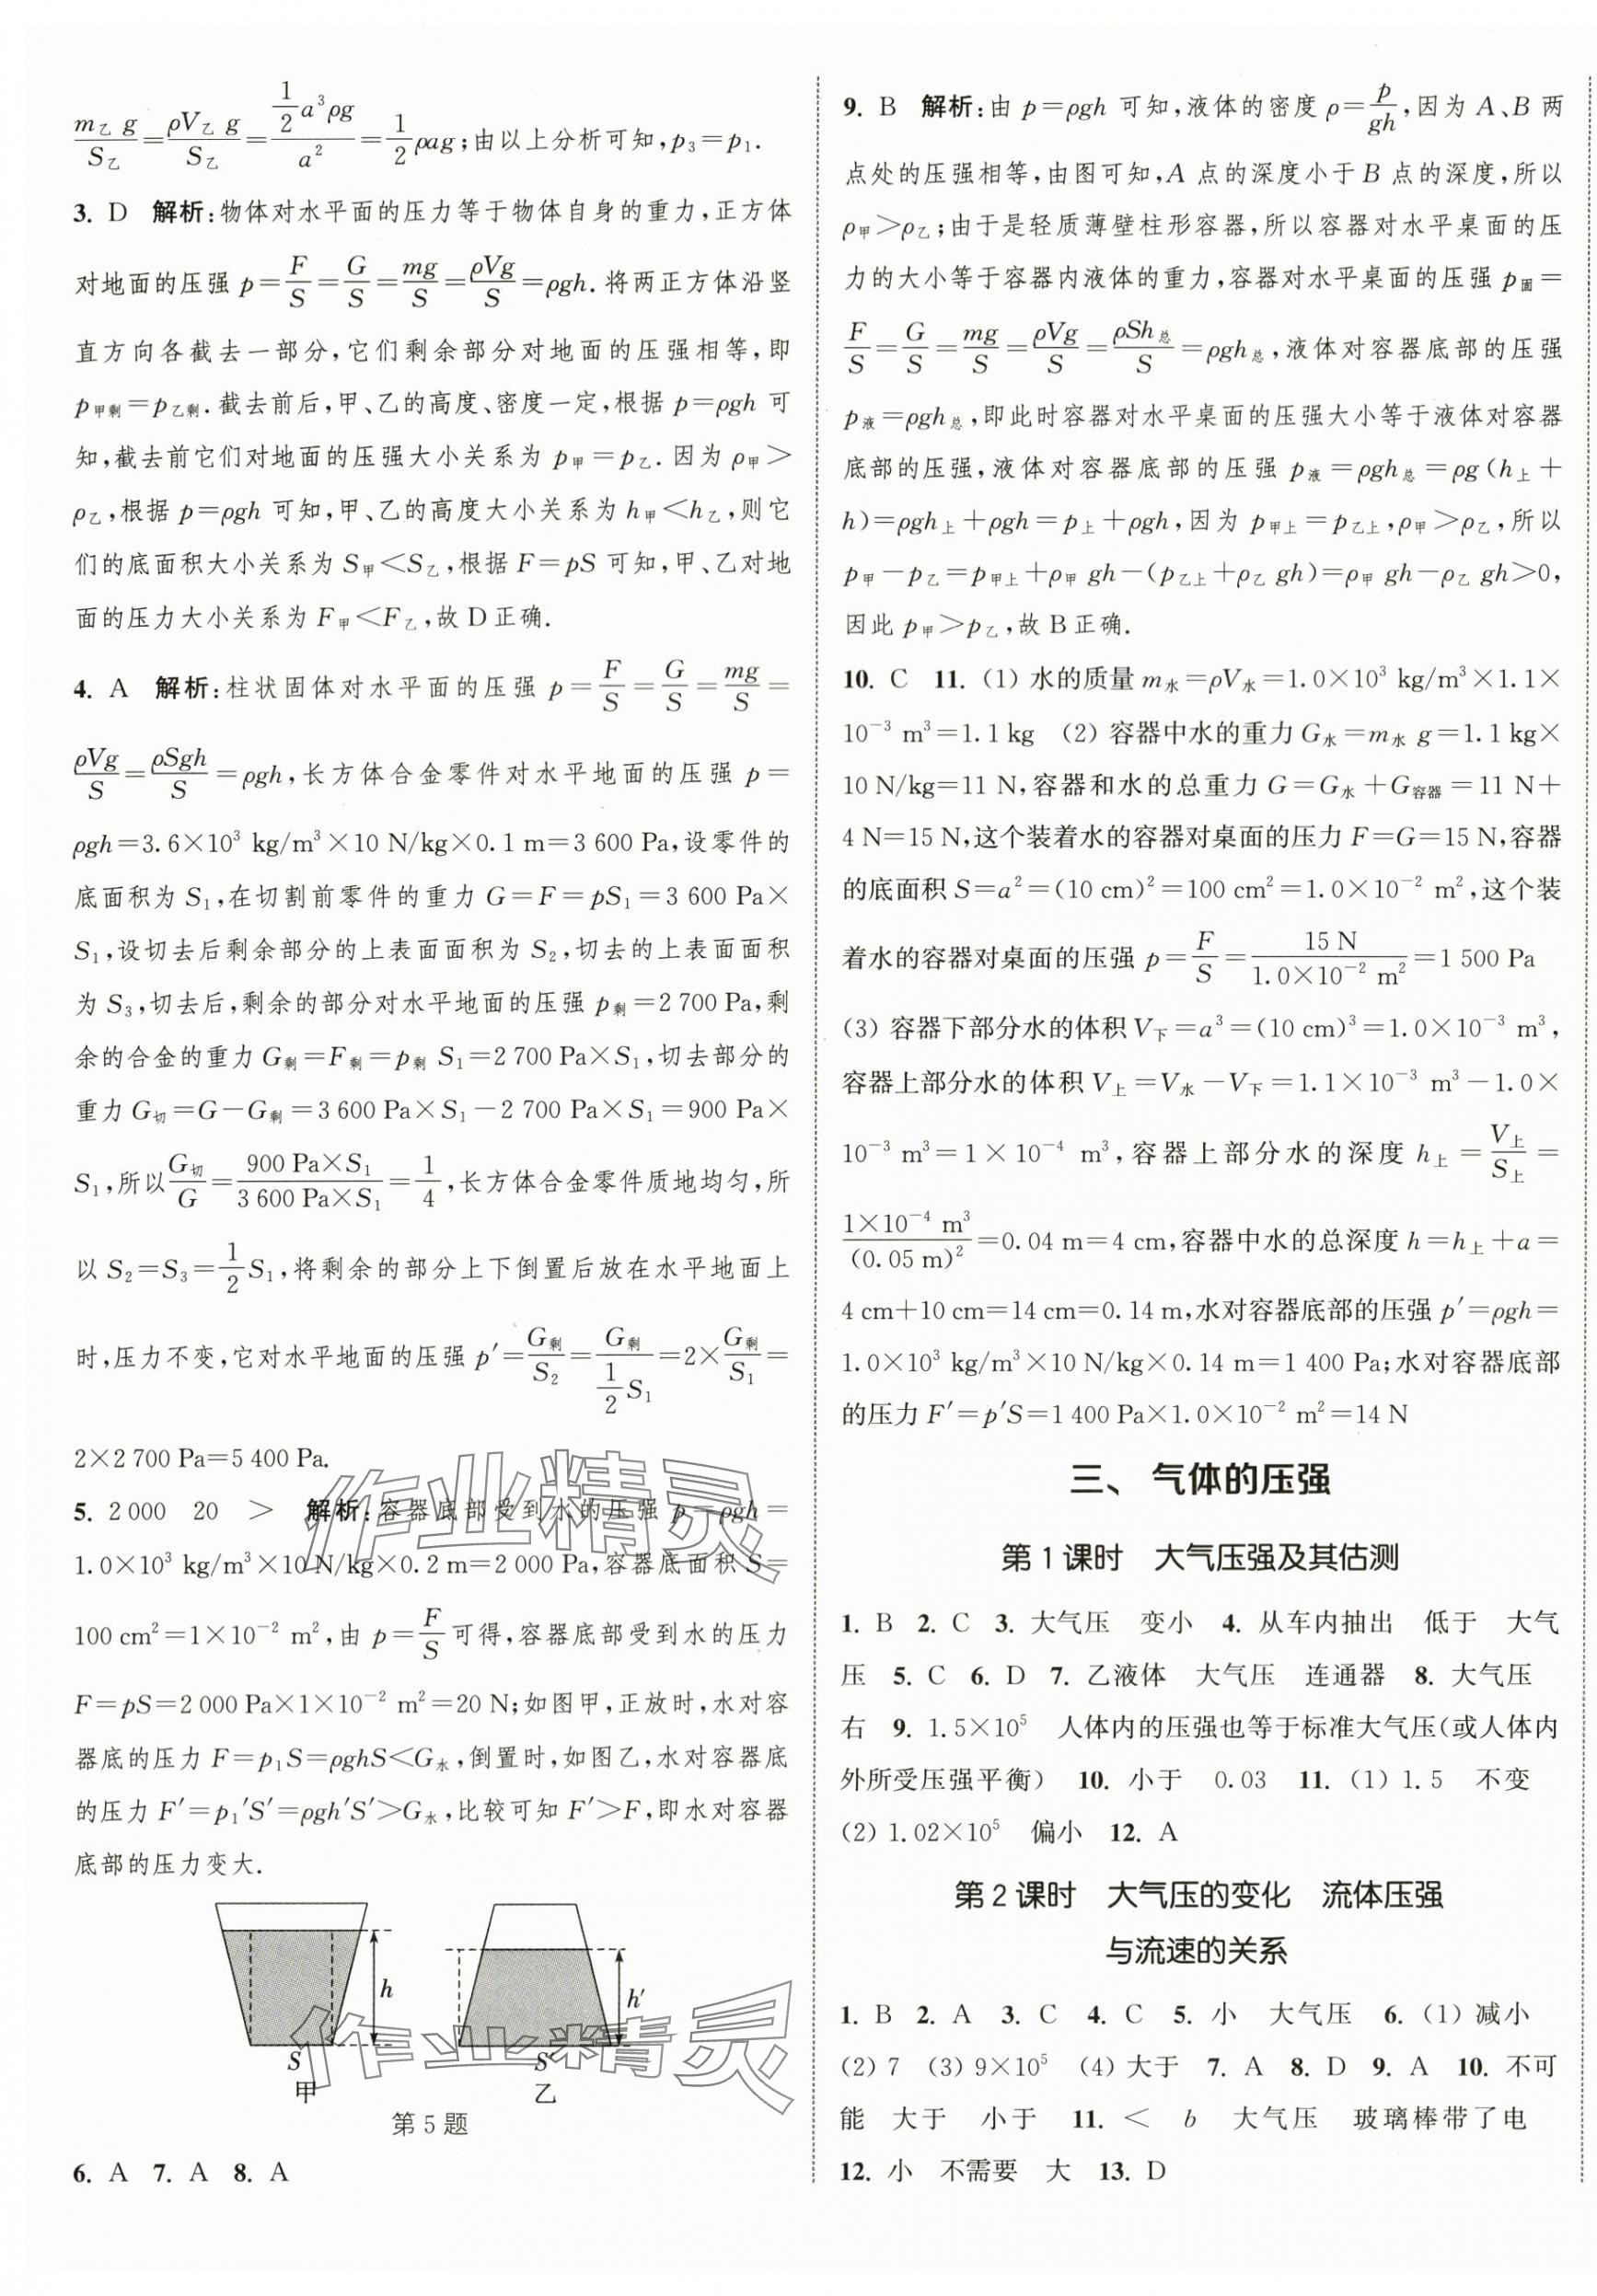 m乙g/S乙=ρV乙g/S乙=(1/2 a³ρg)/a²=1/2 ρag;由以上分析可知,p₃=p₁.
3. D 解析:物体对水平面的压力等于物体自身的重力,正方体
对地面的压强 p=F/S=G/S=mg/S=ρVg/S=ρgh. 将两正方体沿竖
直方向各截去一部分,它们剩余部分对地面的压强相等,即
p甲剩=p乙剩. 截去前后,甲、乙的高度、密度一定,根据 p=ρgh 可
知,截去前它们对地面的压强大小关系为 p甲=p乙. 因为 ρ甲>
ρ乙,根据 p=ρgh 可知,甲、乙的高度大小关系为 h甲<h乙,则它
们的底面积大小关系为 S甲<S乙,根据 F=pS 可知,甲、乙对地
面的压力大小关系为 F甲<F乙,故 D 正确.
4. A 解析:柱状固体对水平面的压强 p=F/S=G/S=mg/S=
ρVg/S=ρSgh/S=ρgh,长方体合金零件对水平地面的压强 p=
ρgh=3.6×10³ kg/m³×10 N/kg×0.1 m=3 600 Pa,设零件的
底面积为 S₁,在切割前零件的重力 G=F=pS₁=3 600 Pa×
S₁,设切去后剩余部分的上表面面积为 S₂,切去的上表面面积
为 S₃,切去后,剩余的部分对水平地面的压强 p剩=2 700 Pa,剩
余的合金的重力 G剩=F剩=p剩 S₁=2 700 Pa×S₁,切去部分的
重力 G切=G-G剩=3 600 Pa×S₁-2 700 Pa×S₁=900 Pa×
S₁,所以G切/G=900 Pa×S₁/3 600 Pa×S₁=1/4,长方体合金零件质地均匀,所
以 S₂=S₃=1/2 S₁,将剩余的部分上下倒置后放在水平地面上
时,压力不变,它对水平地面的压强 p′=G剩/S₂=G剩/(1/2 S₁)=2×G剩/S₁=
2×2 700 Pa=5 400 Pa.
5. 2 000 20 > 解析:容器底部受到水的压强 p=ρgh=
1.0×10³ kg/m³×10 N/kg×0.2 m=2 000 Pa,容器底面积 S=
100 cm²=1×10⁻² m²,由 p=F/S可得,容器底部受到水的压力
F=pS=2 000 Pa×1×10⁻² m²=20 N;如图甲,正放时,水对容
器底的压力 F=p₁S=ρghS<G水,倒置时,如图乙,水对容器底
的压力 F′=p₁′S′=ρgh′S′>G水,比较可知 F′>F,即水对容器
底部的压力变大.
h
h′
S
S′
甲
乙
第 5 题
6. A 7. A 8. A
9. B 解析:由 p=ρgh 可知,液体的密度 ρ=p/gh,因为 A、B 两
点处的压强相等,由图可知,A 点的深度小于 B 点的深度,所以
ρ甲>ρ乙;由于是轻质薄壁柱形容器,所以容器对水平桌面的压
力的大小等于容器内液体的重力,容器对水平桌面的压强 p固=
F/S=G/S=mg/S=ρVg/S=ρSh总/S=ρgh总,液体对容器底部的压强
p液=ρgh总,即此时容器对水平桌面的压强大小等于液体对容器
底部的压强,液体对容器底部的压强 p液=ρgh总=ρg(h上+
h)=ρgh上+ρgh=p上+ρgh,因为 p甲上=p乙上,ρ甲>ρ乙,所以
p甲-p乙=p甲上+ρ甲 gh-(p乙上+ρ乙 gh)=ρ甲 gh-ρ乙 gh>0,
因此 p甲>p乙,故 B 正确.
10. C 11. (1) 水的质量 m水=ρV水=1.0×10³ kg/m³×1.1×
10⁻³ m³=1.1 kg (2) 容器中水的重力 G水=m水 g=1.1 kg×
10 N/kg=11 N,容器和水的总重力 G=G水+G容器=11 N+
4 N=15 N,这个装着水的容器对桌面的压力 F=G=15 N,容器
的底面积 S=a²=(10 cm)²=100 cm²=1.0×10⁻² m²,这个装
着水的容器对桌面的压强 p=F/S=15 N/1.0×10⁻² m²=1 500 Pa
(3) 容器下部分水的体积 V下=a³=(10 cm)³=1.0×10⁻³ m³,
容器上部分水的体积 V上=V水-V下=1.1×10⁻³ m³-1.0×
10⁻³ m³=1×10⁻⁴ m³,容器上部分水的深度 h上=V上/S上=
1×10⁻⁴ m³/(0.05 m)²=0.04 m=4 cm,容器中水的总深度 h=h上+a=
4 cm+10 cm=14 cm=0.14 m,水对容器底部的压强 p′=ρgh=
1.0×10³ kg/m³×10 N/kg×0.14 m=1 400 Pa;水对容器底部
的压力 F′=p′S=1 400 Pa×1.0×10⁻² m²=14 N
三、 气体的压强
第 1 课时 大气压强及其估测
1. B 2. C 3. 大气压 变小 4. 从车内抽出 低于 大气
压 5. C 6. D 7. 乙液体 大气压 连通器 8. 大气压
右 9. 1.5×10⁵ 人体内的压强也等于标准大气压(或人体内
外所受压强平衡) 10. 小于 0.03 11. (1) 1.5 不变
(2) 1.02×10⁵ 偏小 12. A
第 2 课时 大气压的变化 流体压强
与流速的关系
1. B 2. A 3. C 4. C 5. 小 大气压 6. (1) 减小
(2) 7 (3) 9×10⁵ (4) 大于 7. A 8. D 9. A 10. 不可
能 大于 小于 11. < b 大气压 玻璃棒带了电
12. 小 不需要 大 13. D
作业精灵
作业精灵